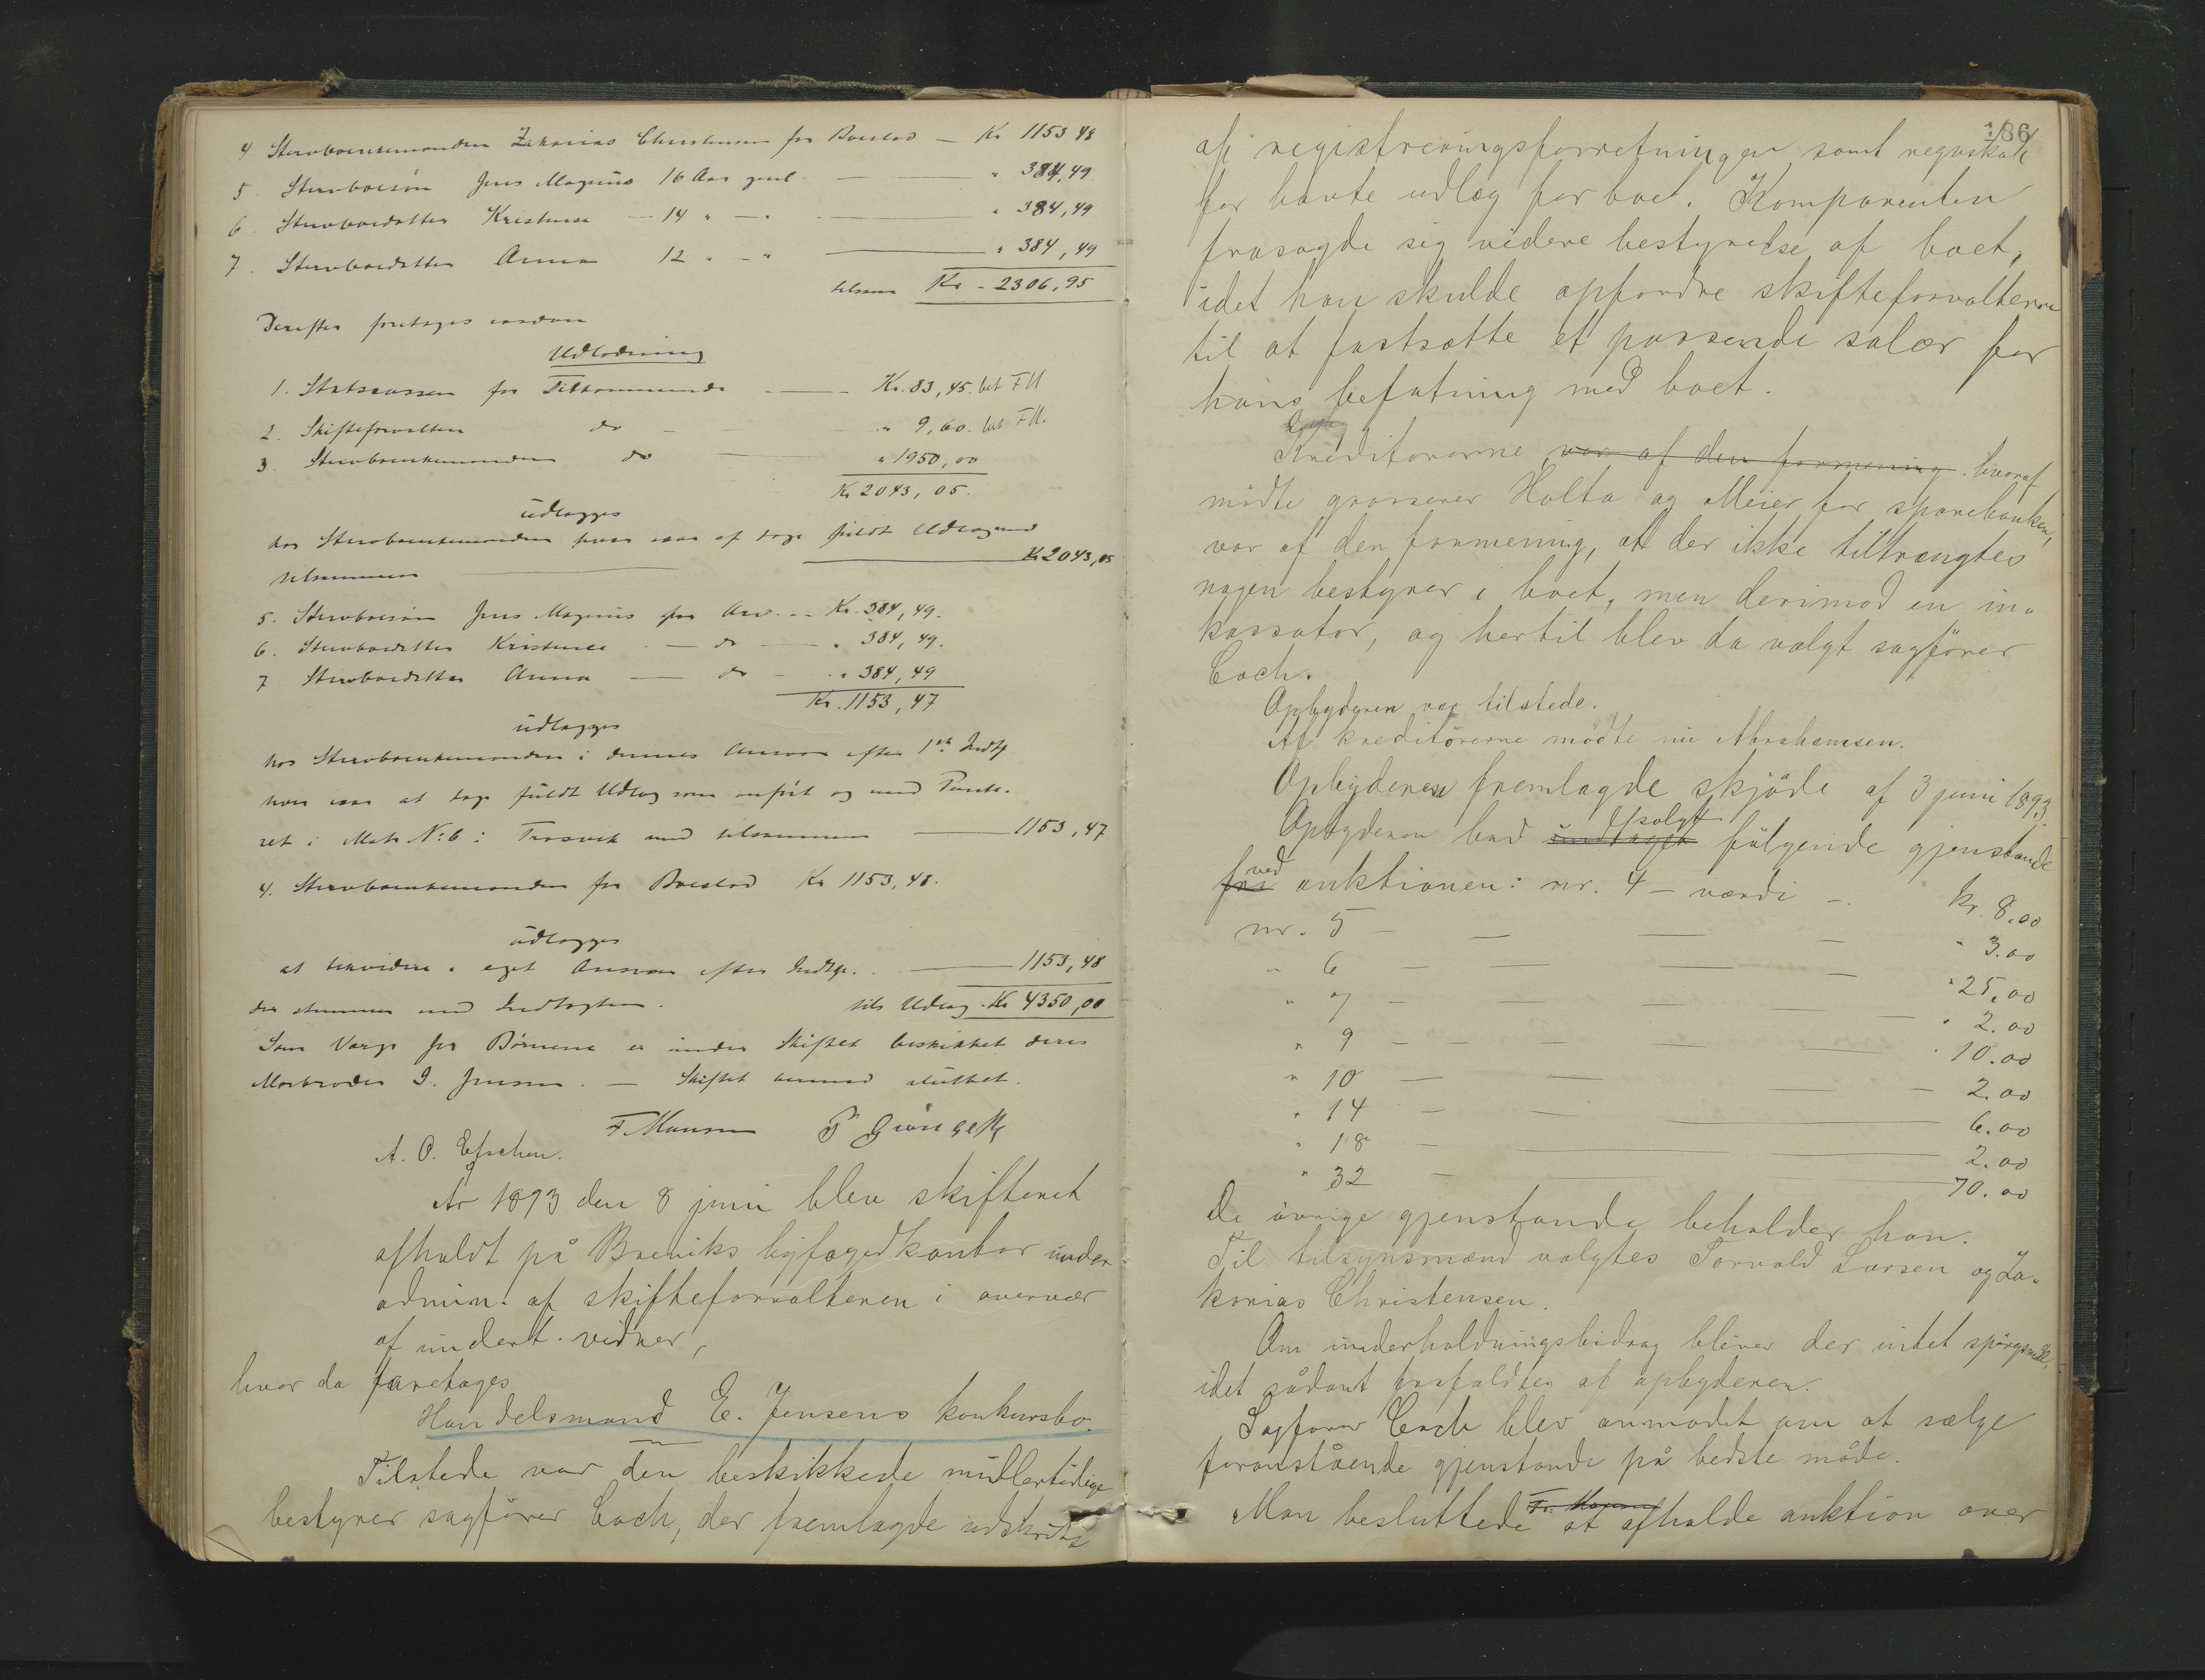 4 Stervboenkemanden Zakarias Christensen for Boeslod — Kr 1153,48
5. Stervboesøn Jens Magnus 16 Aar gml. — — " 384,49
6. Stervboedatter Kristense — 14 " — " — " 384,49
7. Stervboedatter Anna 12 " — " — " 384,49
tilsam Kr - 2306,95
Derefter foretoges saadan
Udlodning
1. Statskassen for Tilkommende — Kr. 83,45. bet FM
2. Skifteforvalteren do — " 9,60. bet FM.
3. Stervboenkemanden do — " 1950,00
Kr 2043,05.
udlægges
hos Stervboenkemanden hvor man at tage fuldt Udlæg med
tilsammen — Kr 2043,05
5. Stervboesøn Jens Magnus for Arv — Kr. 384,49.
6. Stervboedatter Kristense — do — " 384,49.
7 Stervboedatter Anna — do — " 384,49
Kr. 1153,47
udlægges
hos Stervboenkemanden i dennes Ansvar efter 1ste Indtg
hvor man at tage fuldt Udlæg som anført og med Pante-
ret i Matr No: 6: Trosvik med tilsammen — 1153,47
4. Stervboenkemanden for Boeslod Kr 1153,48.
udlægges
at likvidere i eget Ansvar efter Indtg. — 1153,48
der stemmer med Indtægten. tils Udlæg - Kr 4350,00
Som Værge for Børnene er under Skiftet beskikket deres
Morbroder J. Jensen. — Skiftet hermed sluttet.
F Mausen
A. O. Efschen.
År 1893 den 8 juni blev skifteret
afholdt på Breviks byfogedkontor under
admin. af skifteforvalteren i overvær
af undert. vidner,
hvor da foretoges
Handelsmand E. Jensens konkursbo.
Tilstede var den beskikkede midlertidige
bestyrer sagfører Coch, der fremlagde udskrift
186
af registreringsforretningen samt regnskab
for havte udlæg for boet. Komparenten
frasagde sig videre bestyrelse af boet,
idet han skulde opfordre skifteforvalteren
til at fastsætte et passende salær for
hans befatning med boet.
Kreditorerne var af den formening. hvoraf
mødte grosserer Holta og Meier for sparebanken,
var af den formening, at der ikke tiltrængtes
nogen bestyrer i boet, men derimod en in-
kassator, og hertil blev da valgt sagfører
Coch.
Opbyderen var tilstede.
Af kreditorerne mødte nu Abrahamsen.
Opbyderen fremlagde skjøde af 3 juni 1893.
Opbyderen bad undtaget solgt følgende gjenstande
fra ved auktionen: nr. 4 — værdi — kr. 8.00
nr. 5 — — — — " 3.00
" 6 — — — — " 25,00
" 7 — — — — " 2.00
" 9 — — — — " 10.00
" 10 — — — — 2.00
" 14 — — — 6.00
" 18 — — — 2.00
" 32 — — 70.00
De øvrige gjenstande beholder han.
Til tilsynsmænd valgtes Torvald Larsen og Za-
karias Christensen.
Om underholdningsbidrag bliver der intet spørgsmål,
idet sådant frafaldtes af opbyderen.
Sagfører Coch blev anmodet om at sælge
foranstående gjenstande på bedste måde.
Man besluttede at afholde auktion over